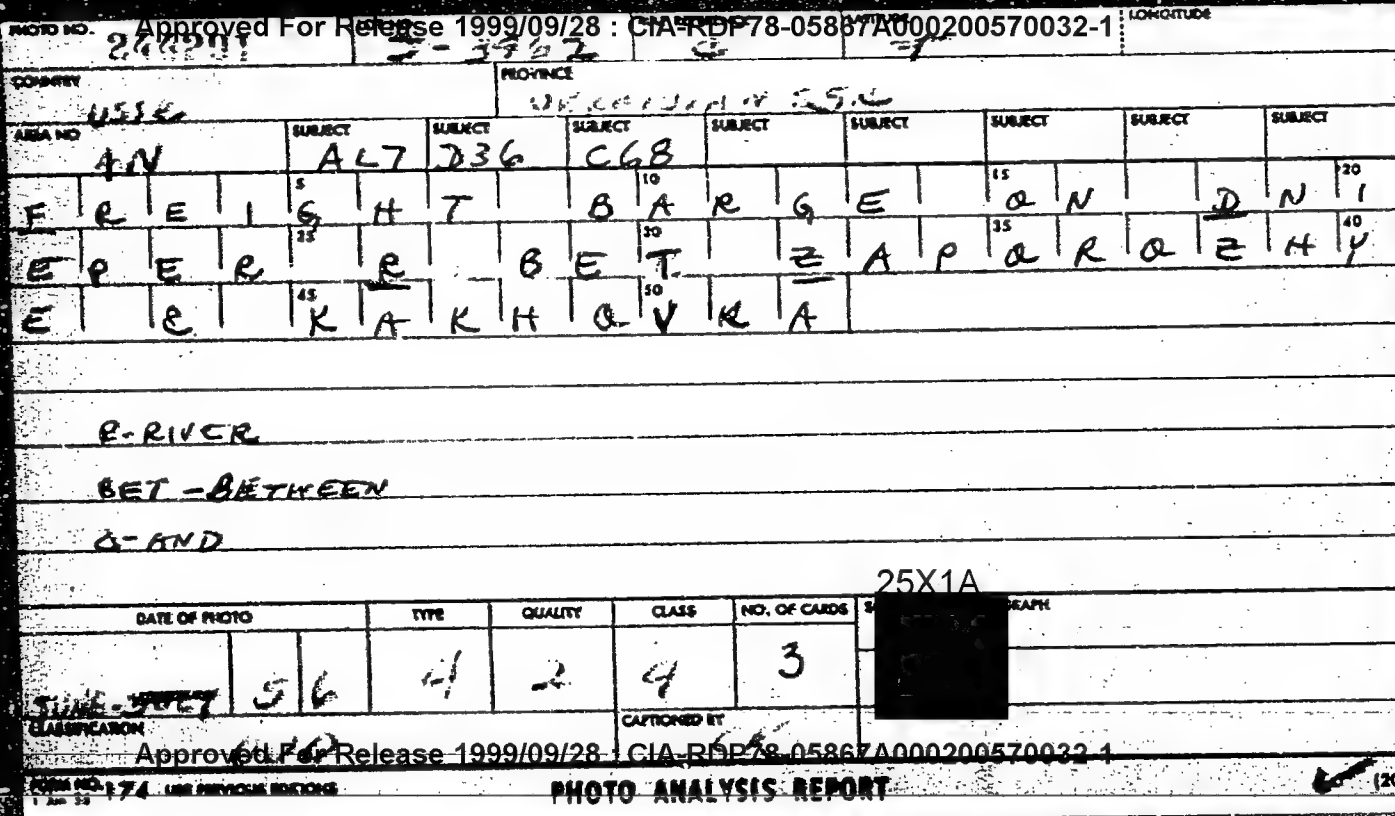 PHOTO NO. Approved For Release 1999/09/28 : CIA-RDP78-05867A000200570032-1 LONGITUDE
COUNTRY PROVINCE
USSR UKRAINIAN S.S.R.
AREA NO SUBJECT SUBJECT SUBJECT SUBJECT SUBJECT SUBJECT SUBJECT SUBJECT
4N AL7 D36 C68
5 10 15 20
FREIGHT BARGE ON DNI
25 30 35 40
EPER R BET ZAPOROZHY
45 50
E & KAKHOVKA
R-RIVER
BET - BETWEEN
&- AND
25X1A
DATE OF PHOTO TYPE QUALITY CLASS NO. OF CARDS
56 4 2 4 3
CLASSIFICATION CAPTIONED BY
Approved For Release 1999/09/28 : CIA-RDP78-05867A000200570032-1
FORM NO. 174 USE PREVIOUS EDITIONS PHOTO ANALYSIS REPORT